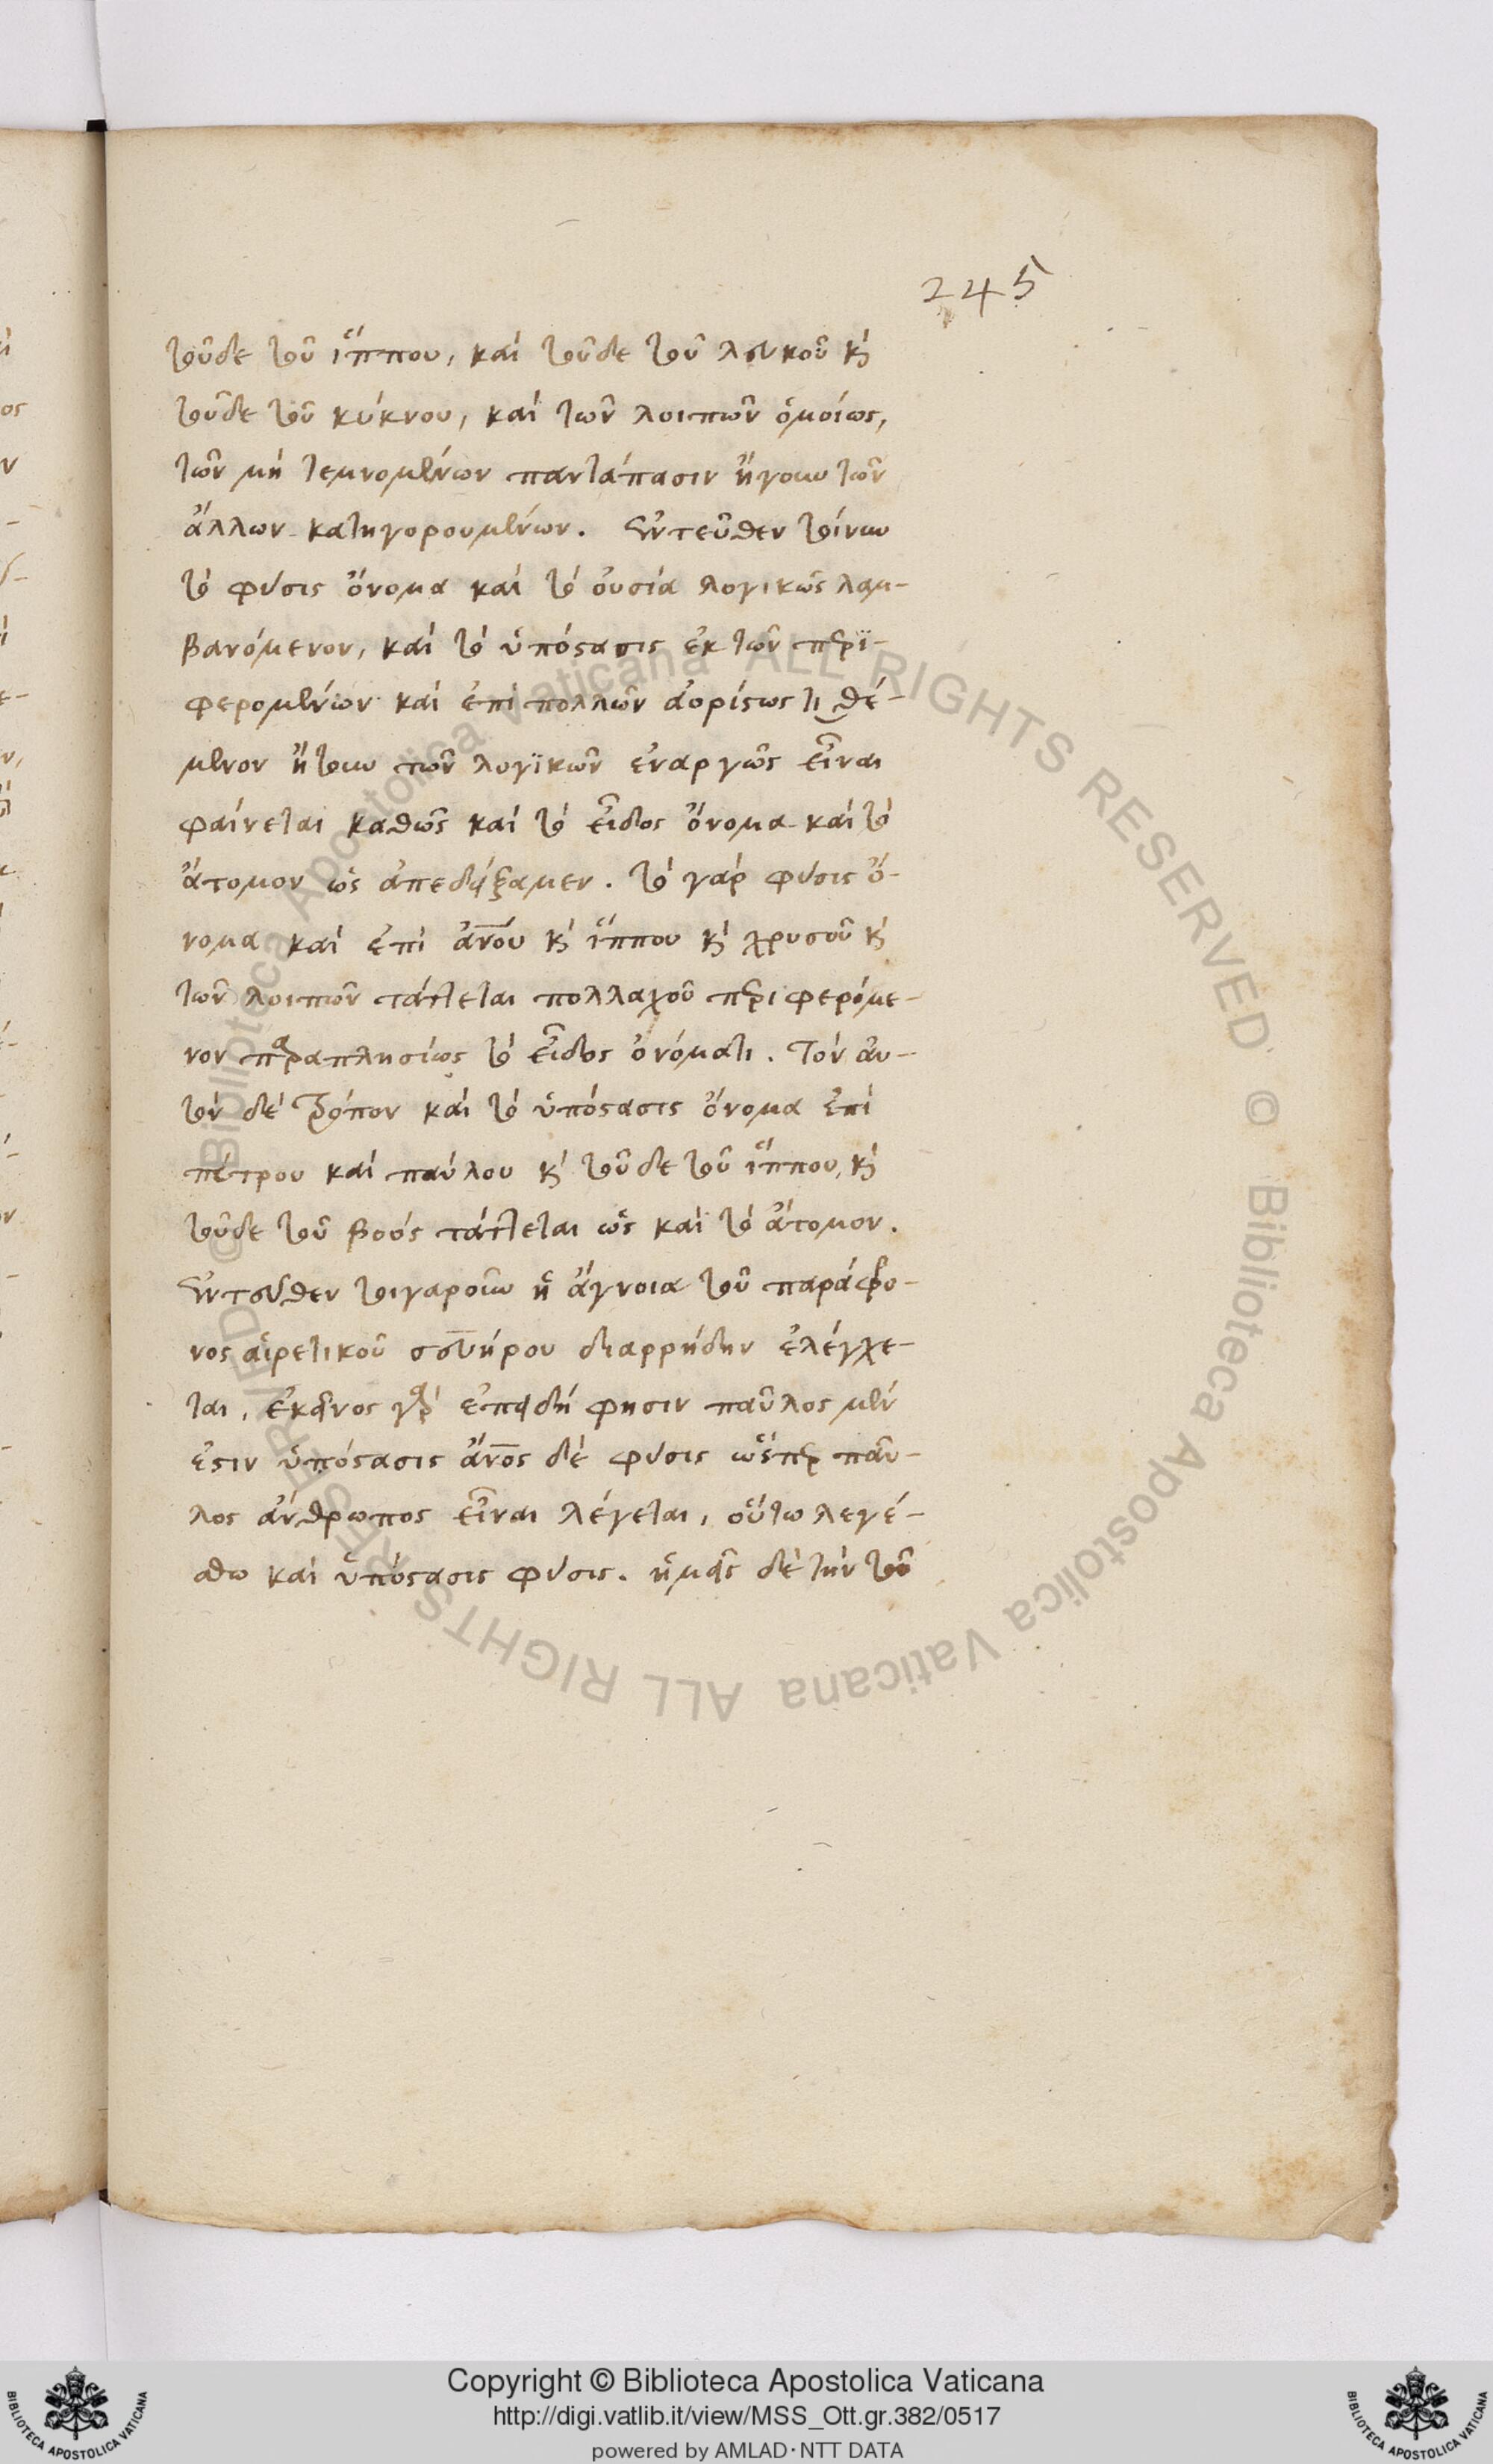 245
τοῦδε τοῦ ἵππου, καὶ τοῦδε τοῦ λευκοῦ κὶ
τοῦδε τοῦ κύκνου, καὶ τῶν λοιπῶν ὁμοίως,
τῶν μὴ τεμνομένων παντάπασιν ἤγουν τῶν
ἄλλων κατηγορουμένων. ἐντεῦθεν τοίνυν
τὸ φύσις ὄνομα καὶ τὸ οὐσία λογικῶς λαμ-
βανόμενον, καὶ τὸ ὑπόστασις ἐκ τῶν περϊ-
φερομένων καὶ ἐπὶ πολλῶν ἀορίστως τιθέ-
μενον ἤτουν τῶν λογϊκῶν ἐναργῶς εἶναι
φαίνεται καθὼς καὶ τὸ εἶδος ὄνομα καὶ τὸ
ἄτομον ὡς ἀπεδείξαμεν. τὸ γὰρ φύσις ὄ-
νομα καὶ ἐπὶ ἀνου κὶ ἵππου κὶ χρυσοῦ κὶ
τῶν λοιπῶν τάττεται πολλαχοῦ περιφερόμε-
νον παραπλησίως τὸ εἶδος ὀνόματι. Τὸν αὐ-
τὸν δὲ τρόπον καὶ τὸ ὑπόστασις ὄνομα ἐπὶ
πέτρου καὶ παύλου κὶ τοῦδε τοῦ ἵππου, κὶ
τοῦδε τοῦ βοὸς τάττεται ὡς καὶ τὸ ἄτομον.
ἐντεῦθεν τοιγαροῦν ἡ ἄγνοια τοῦ παράφρο-
νος αἱρετικοῦ σευήρου διαρρήδην ἐλέγχε-
ται. ἐκεῖνος γὰρ ἐπειδή φησιν παῦλος μὲν
ἐστιν ὑπόστασις ἄνος δὲ φύσις ὥσπερ παῦ-
λος ἄνθρωπος εἶναι λέγεται, οὕτω λεγέ-
σθω καὶ ὑπόστασις φύσις. ἡμεῖς δὲ τὴν τοῦ
Copyright © Biblioteca Apostolica Vaticana
http://digi.vatlib.it/view/MSS_Ott.gr.382/0517
powered by AMLAD·NTT DATA